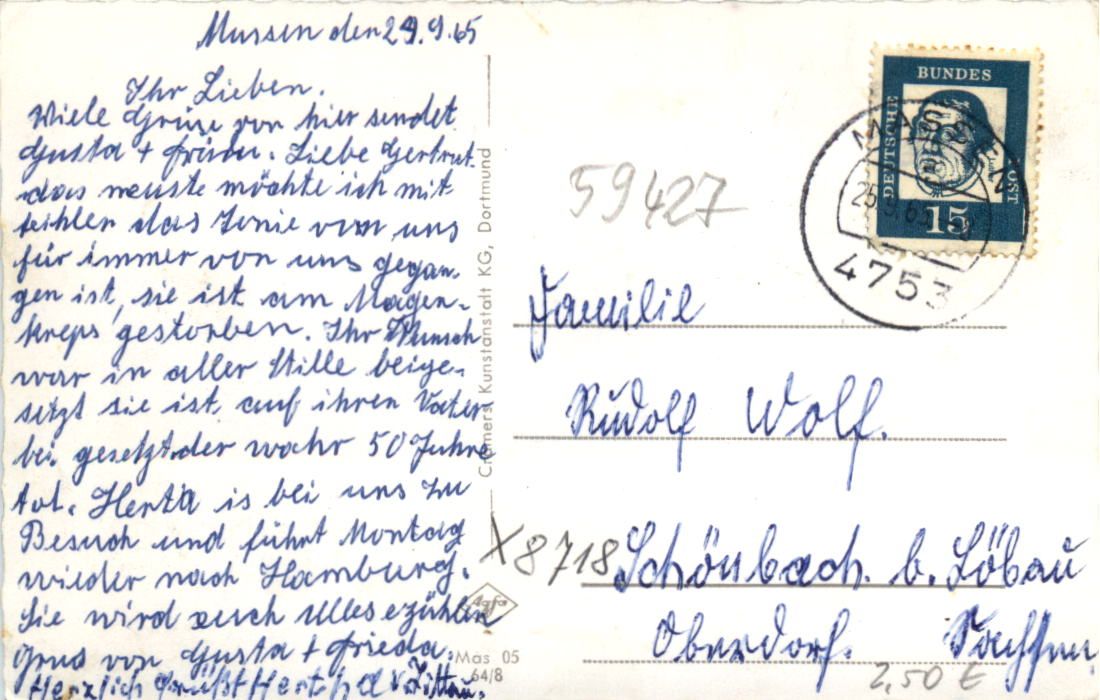 Massen den 24.9.65
Ihr Lieben.
Viele Grüße von hier sendet
Gusta + Frieda. Liebe Gertrut.
das neuste möchte ich mit
teihlen das Tonie von uns
für immer von uns gegan-
gen ist, sie ist am Magen-
kreps gestorben. Ihr Wunsch
war in aller Stille beige-
setzt sie ist auf ihren Vater
bei gesetzt der wahr 50 Jahre
tot. Herta is bei uns zu
Besuch und führt Montag
wieder nach Hamburg.
Sie wird euch alles ezühlen
Grus von Gusta + Frieda.
Herzlich grüßt Herta
Cramers Kunstanstalt KG, Dortmund
Agfa
Mas 05
64/8
DEUTSCHE BUNDESPOST
15
MASSEN
25.9.65
4753
59427
Familie
Rudolf Wolf.
X8718 Schönbach. b. Löbau
Oberdorf. Sachsen
2,50 €